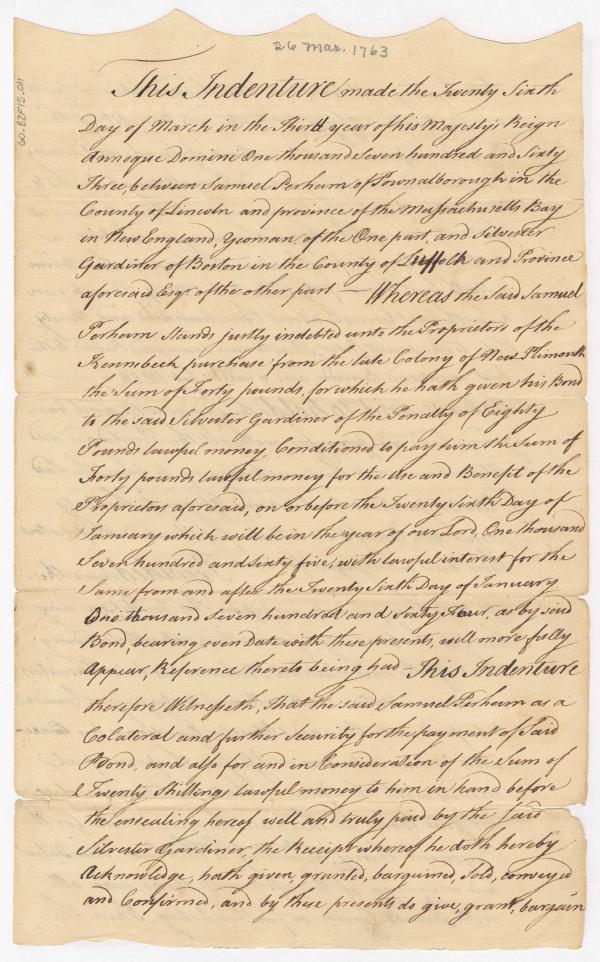 26 Mar. 1763
60-82F15.011
This Indenture made the Twenty Sixth
Day of March in the Third year of his Majesty's Reign
Annoque Domini One thousand Seven hundred and Sixty
Three, between Samuel Perham of Pownalborough in the
County of Lincoln and province of the Massachusetts Bay
in New England, Yeoman, of the One part, and Silvester
Gardiner of Boston in the County of Suffolk and Province
aforesaid Esqr. of the other part — Whereas the Said Samuel
Perham Stands justly indebted unto the Proprietors of the
Kennebeck purchase from the late Colony of New Plimouth
the Sum of Forty pounds, for which he hath given his Bond
to the said Silvester Gardiner of the Penalty of Eighty
Pounds lawful money, Conditioned to pay him the Sum of
Forty pounds lawful money for the use and Benefit of the
Proprietors aforesaid, on or before the Twenty Sixth Day of
January which will be in the year of our Lord, One thousand
Seven hundred and sixty five, with lawful interest for the
Same from and after the Twenty Sixth Day of January
One thousand Seven hundred and Sixty Four, as by said
Bond, bearing even Date with these presents, will more fully
Appear, Reference thereto being had — This Indenture
therefore Witnesseth, That the said Samuel Perham as a
Colateral and further Security for the payment of Said
Bond, and also for and in Consideration of the Sum of
Twenty Shillings Lawful money to him in hand before
the ensealing hereof well and truly paid by the Said
Silvester Gardiner, the Receipt whereof he doth hereby
Acknowledge, hath given, granted, bargained, Sold, conveyed
and Confirmed, and by these presents do give, grant, bargain